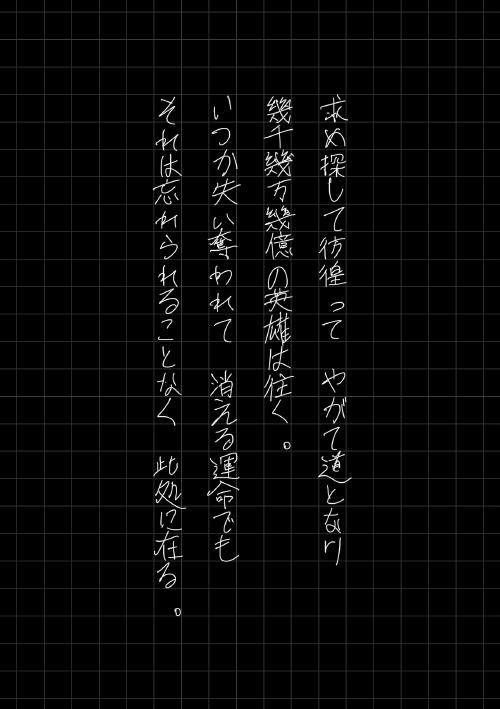 求め探して彷徨って　やがて道となり
幾千幾万幾億の英雄は往く。
いつか失い奪われて　消える運命でも
それは忘れられることなく　此処に在る。